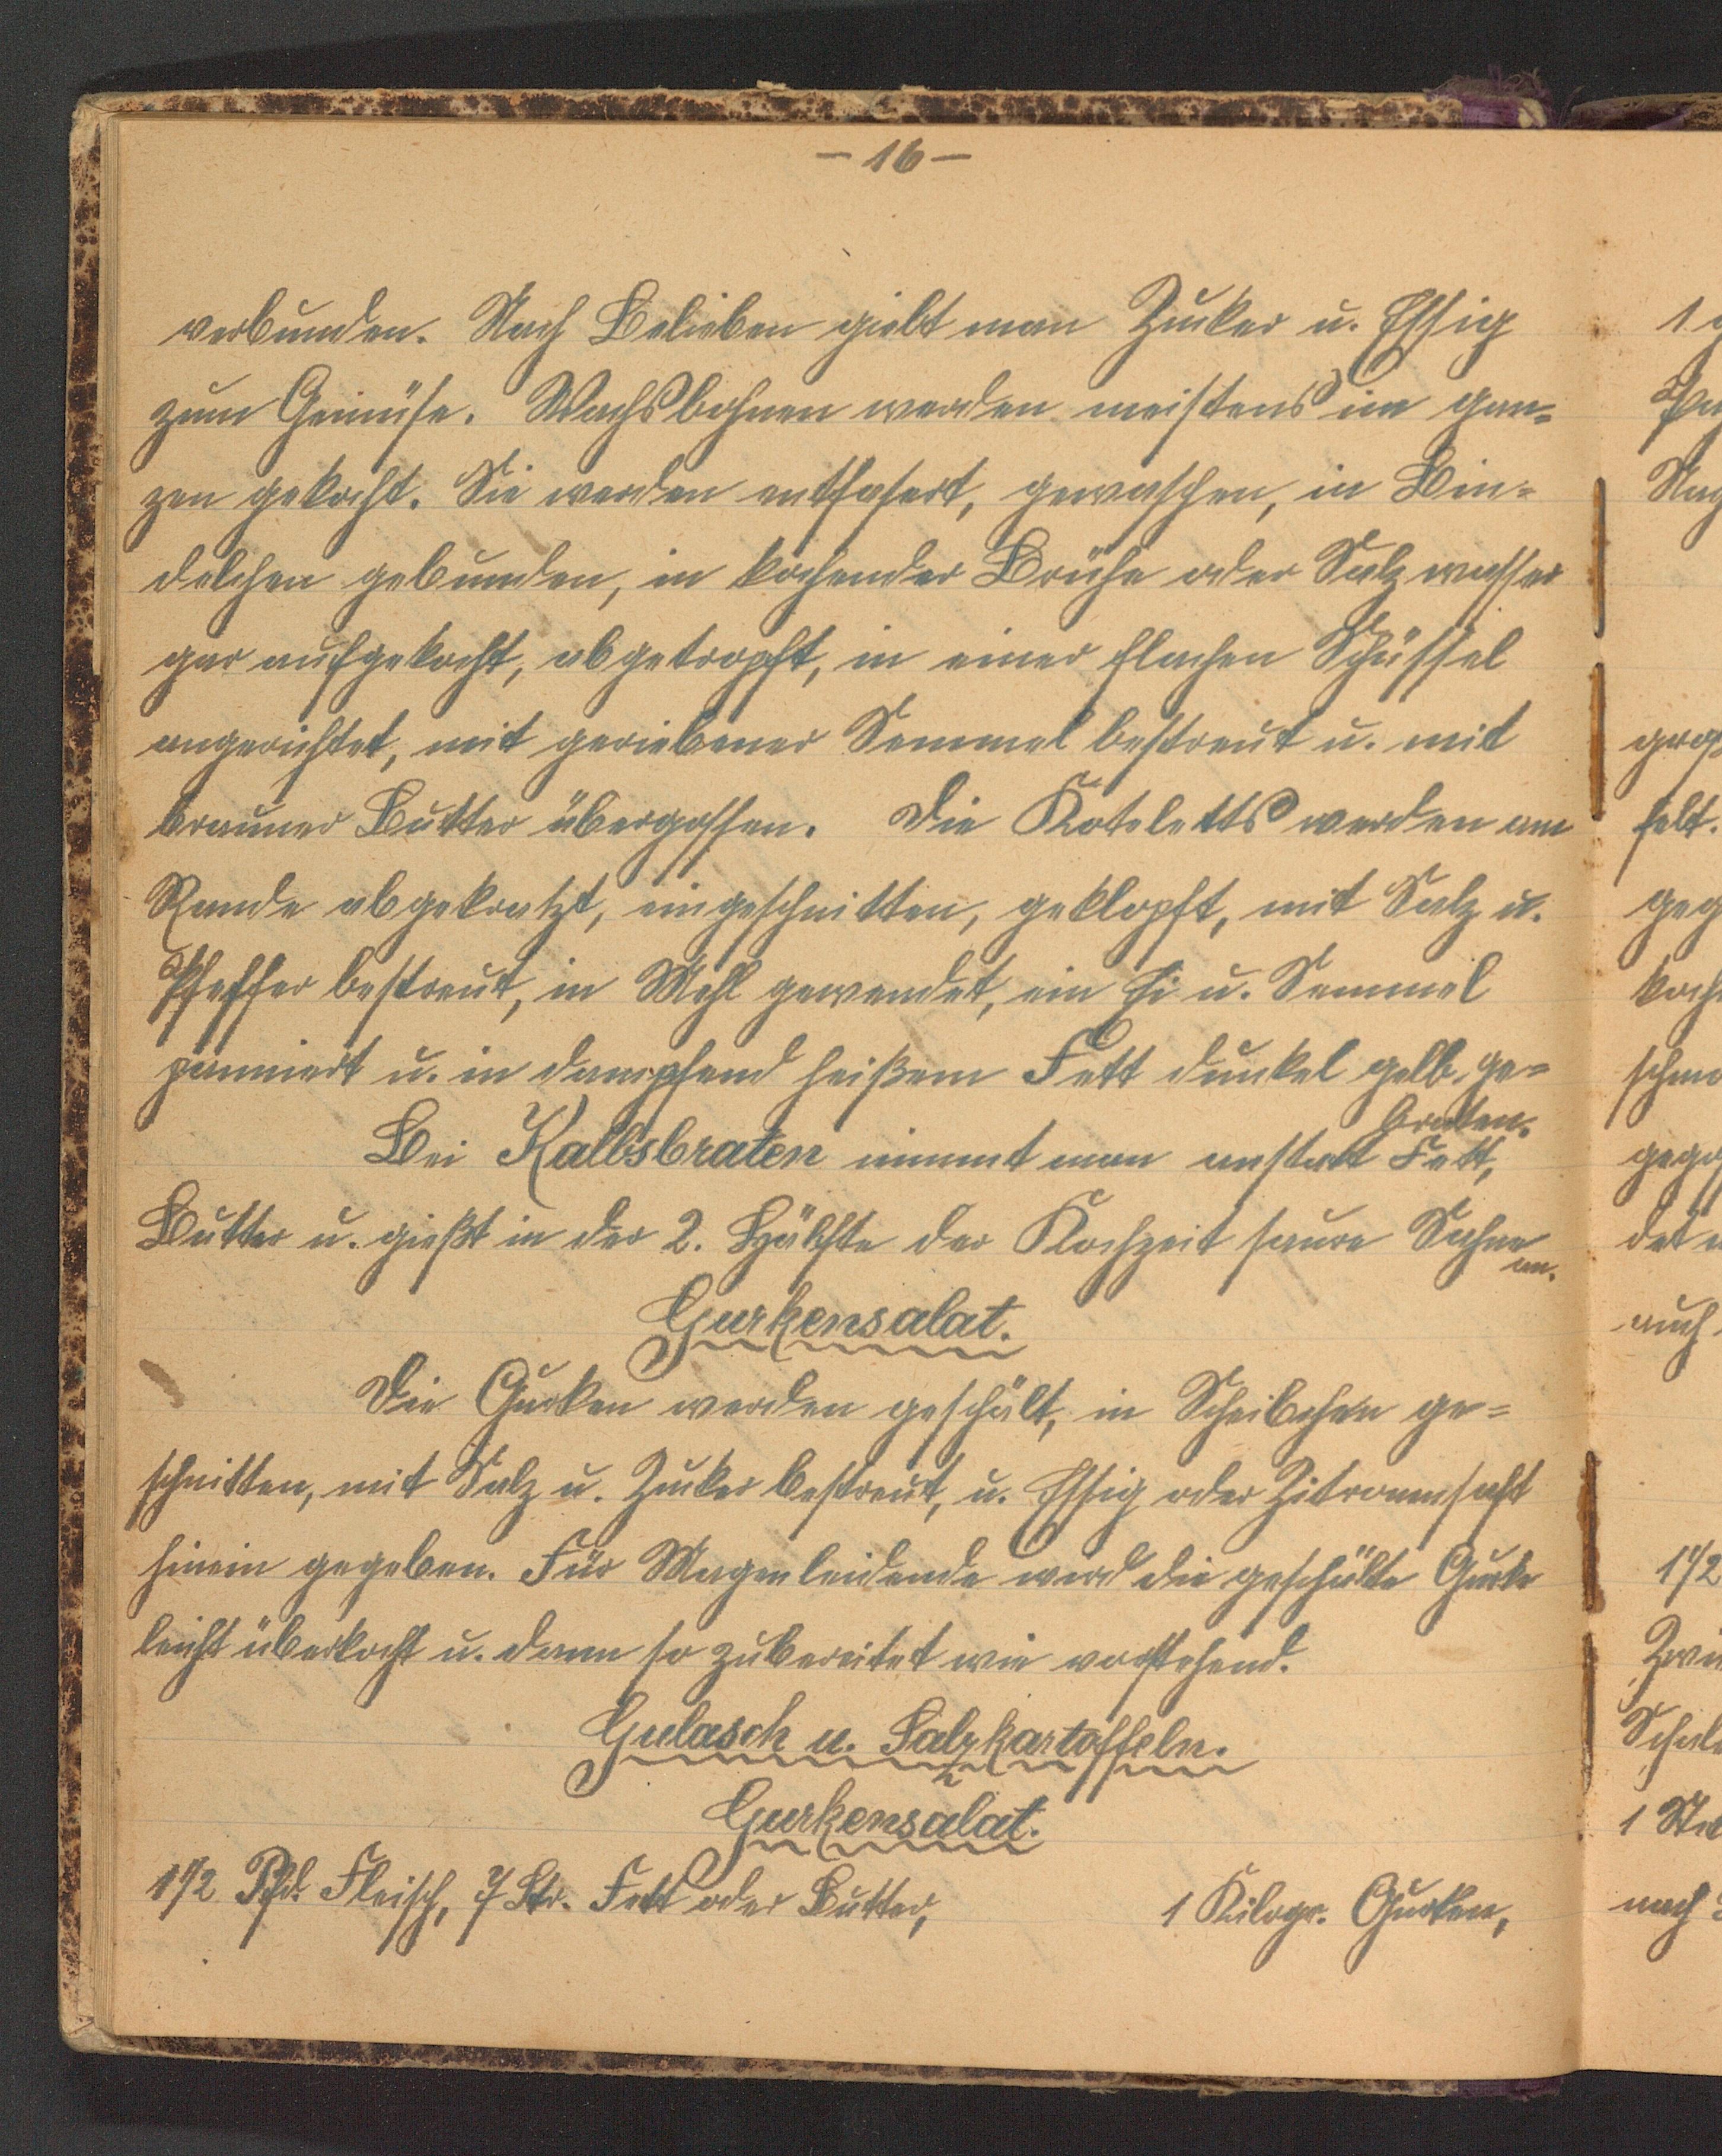 - 16 -
verbunden. Nach Belieben giebt man Zucker u. Essig
zum Gemüse. Wachsbohnen werden meistens im gan-
zen gekocht. Sie werden entfasert, gewaschen, in Bün-
delchen gebunden, in kochender Brühe oder Salzwasser
gar aufgekocht, abgetropft, in einer flachen Schüssel
angerichtet, mit geriebener Semmel bestreut u. mit
brauner Butter übergossen. Die Koteletts werden am
Rande abgekratzt, eingeschnitten, geklopft, mit Salz u.
Pfeffer bestreut, in Mehl gewendet, ein Ei u. Semmel
panniert u. in dampfend heißem Fett dunkel gelb ge-
braten.
Bei Kalbsbraten nimmt man anstatt Fett,
Butter u. gießt in der 2. Hälfte der Kochzeit saure Sahne
an.
Gurkensalat.
Die Gurken werden geschält, in Scheibchen ge-
schnitten, mit Salz u. Zucker bestreut, u. Essig oder Zitronensaft
hinein gegeben. Für Magenleidende wird die geschälte Gurke
leicht überkocht u. dann so zubereitet wie vorstehend.
Gulasch u. Salzkartoffeln.
Gurkensalat.
1 1/2 Pfd. Fleisch, 7 Str. Fett oder Butter, 1 Kilogr. Gurken,